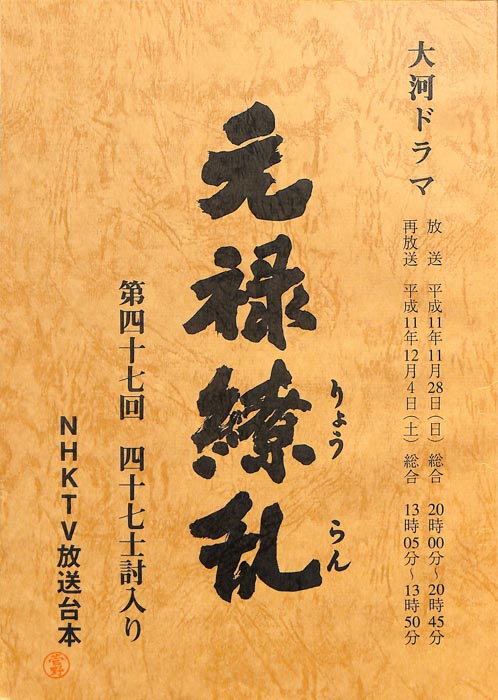 大河ドラマ
放送 平成11年11月28日(日) 総合 20時00分〜20時45分
再放送 平成11年12月4日(土) 総合 13時05分〜13時50分
元禄繚乱
りょう らん
第四十七回 四十七士討入り
NHKTV放送台本
菅野